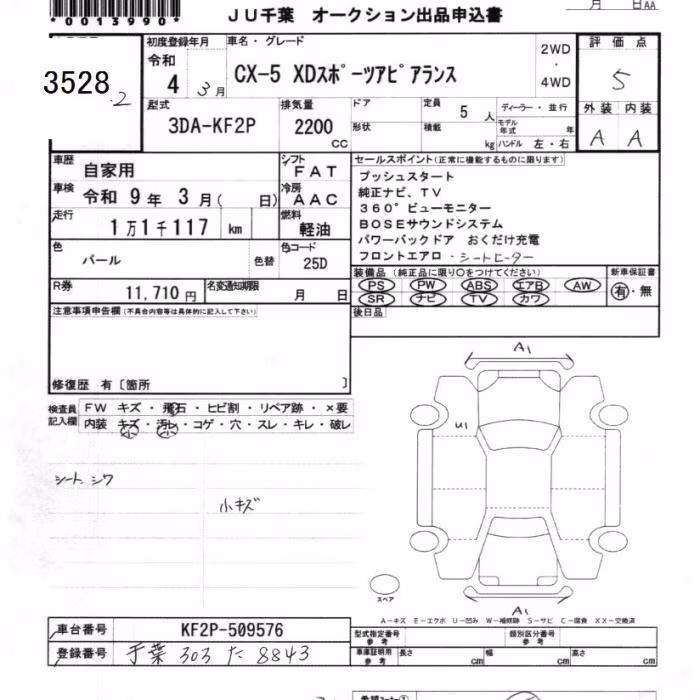 *0013990*
JU千葉 オークション出品申込書
月 日 AA
3528
2
初度登録年月 令和 4 3月
車名・グレード CX-5 XDスポーツアピアランス
2WD ・ 4WD
評価点 5
型式 3DA-KF2P
排気量 2200 CC
ドア 形状
定員 5人
積載 kg
ディーラー・並行
モデル年式 年
ハンドル 左・右
外装 内装
A A
車歴 自家用
シフト FAT
車検 令和 9年 3月( 日)
冷房 AAC
走行 1万1千117 km
燃料 軽油
色 パール 色替
色コード 25D
R券 11,710円
名変通知期限 月 日
セールスポイント(正常に機能するものに限ります)
プッシュスタート
純正ナビ、TV
360°ビューモニター
BOSEサウンドシステム
パワーバックドア おくだけ充電
フロントエアロ・シートヒーター
装備品(純正品に限り○をつけてください)
PS PW ABS エアB AW
SR ナビ TV カワ
新車保証書
有・無
後日品
注意事項申告欄(不具合内容等は具体的に記入して下さい)
修復歴 有〔箇所 〕
検査員記入欄
FW キズ・飛石・ヒビ割・リペア跡・×要
内装 キズ・汚レ・コゲ・穴・スレ・キレ・破レ
小 小
シート シワ
小キズ
A1
U1
A1
スペア
A-キズ E-エクボ U-凹み W-補修跡 S-サビ C-腐食 XX-交換済
車台番号 KF2P-509576
登録番号 千葉 303 た 8843
型式指定番号 参考
類別区分番号 参考
車庫証明用 参考
長さ cm 幅 cm 高さ cm